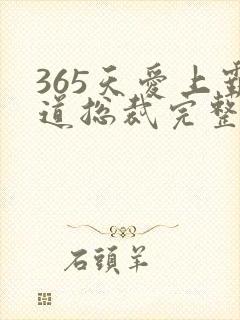 365天爱上霸
道总裁完整
石頭羊